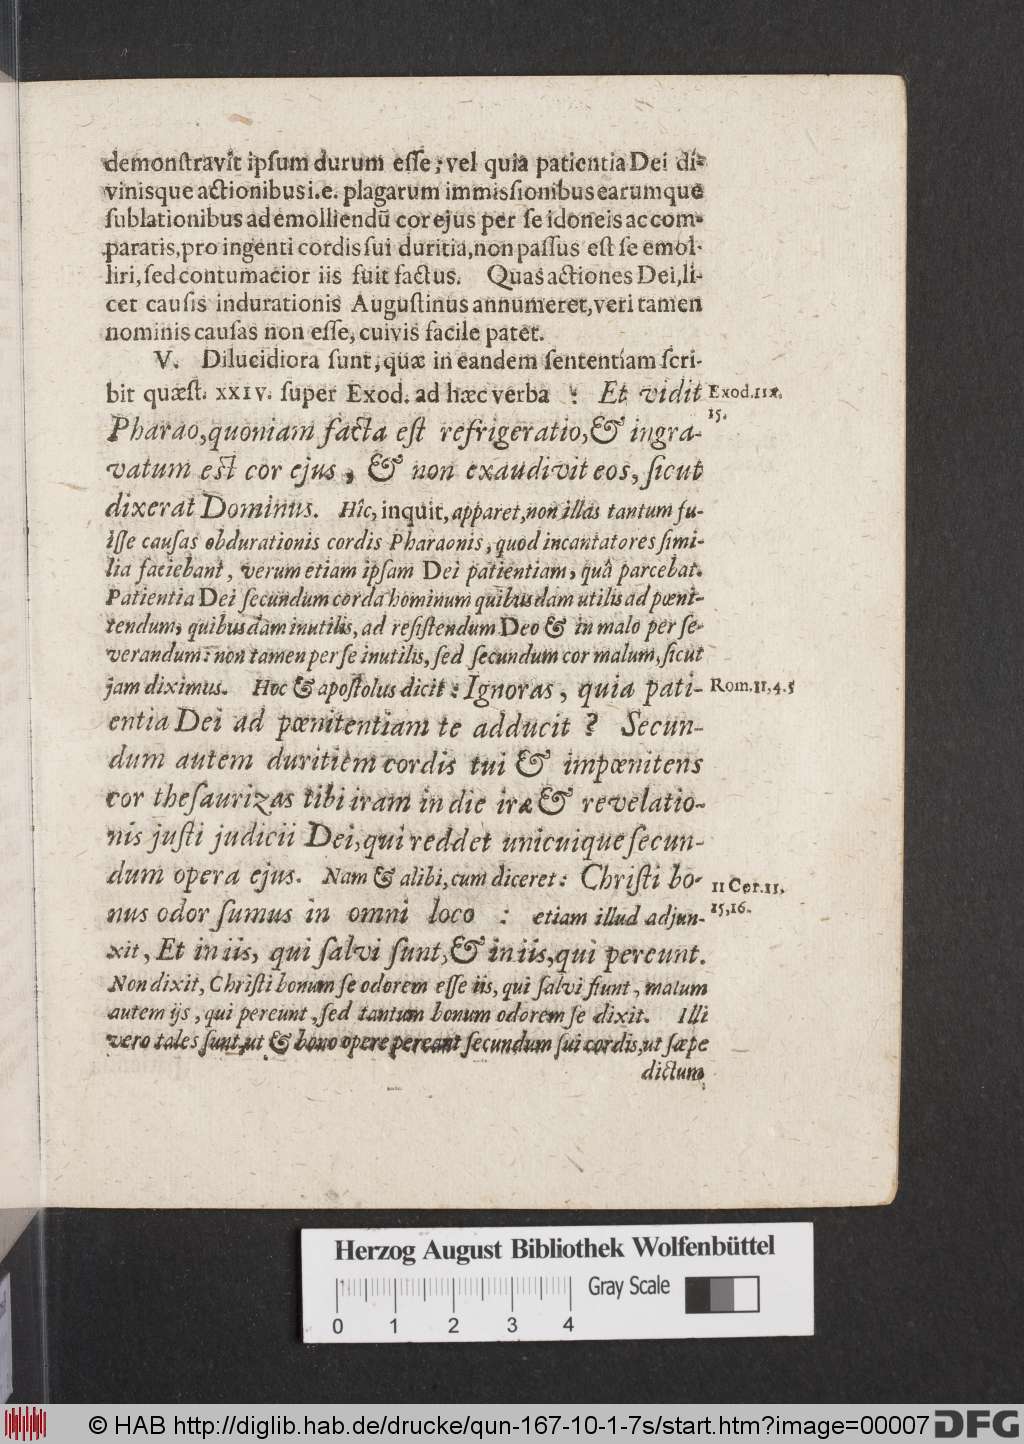 demonſtravit ipſum durum eſſe; vel quia patientia Dei di-
vinisque actionibus i.e. plagarum immisſionibus earumque
ſublationibus ad emolliendū cor ejus per ſe idoneis ac com-
paratis, pro ingenti cordis ſui duritia, non paſſus eſt ſe emol-
liri, ſed contumacior iis fuit factus. Quas actiones Dei, li-
cet cauſis indurationis Auguſtinus annumeret, veri tamen
nominis cauſas non eſſe, cuivis facile patet.
V. Dilucidiora ſunt, quæ in eandem ſententiam ſcri-
bit quæſt. XXIV. ſuper Exod. ad hæc verba : Et vidit
Exod.IIX.
15.
Pharao, quoniam facta eſt refrigeratio, & ingra-
vatum eſt cor ejus, & non exaudivit eos, ſicut
dixerat Dominus. Hîc, inquit, apparet, non illas tantum fu-
iſſe cauſas obdurationis cordis Pharaonis, quod incantatores ſimi-
lia faciebant, verum etiam ipſam Dei patientiam, quâ parcebat.
Patientia Dei ſecundum corda hominum quibusdam utilis ad pœni-
tendum, quibusdam inutilis, ad reſiſtendum Deo & in malo perſe-
verandum: non tamen per ſe inutilis, ſed ſecundum cor malum, ſicut
jam diximus. Hoc & apoſtolus dicit: Ignoras, quia pati-
Rom.II,4.5
entia Dei ad pœnitentiam te adducit ? Secun-
dum autem duritiem cordis tui & impœnitens
cor theſaurizas tibi iram in die iræ & revelatio-
nis juſti judicii Dei, qui reddet unicuique ſecun-
dum opera ejus. Nam & alibi, cum diceret: Chriſti bo-
II Cor.II,
15,16.
nus odor ſumus in omni loco : etiam illud adjun-
xit, Et in iis, qui ſalvi ſunt, & in iis, qui pereunt.
Non dixit, Chriſti bonum ſe odorem eſſe iis, qui ſalvi fiunt, malum
autem ijs, qui pereunt, ſed tantum bonum odorem ſe dixit. Illi
vero tales ſunt, ut & bono opere pereant ſecundum ſui cordis, ut ſæpe
dictum
Herzog August Bibliothek Wolfenbüttel
Gray Scale
0 1 2 3 4
© HAB http://diglib.hab.de/drucke/qun-167-10-1-7s/start.htm?image=00007
DFG